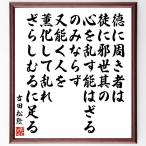 徳に周き者は
徒に邪世其の
心を乱す能はざる
のみならず
又能く人を
薫化して乱れ
ざらしむるに足る
吉田松陰